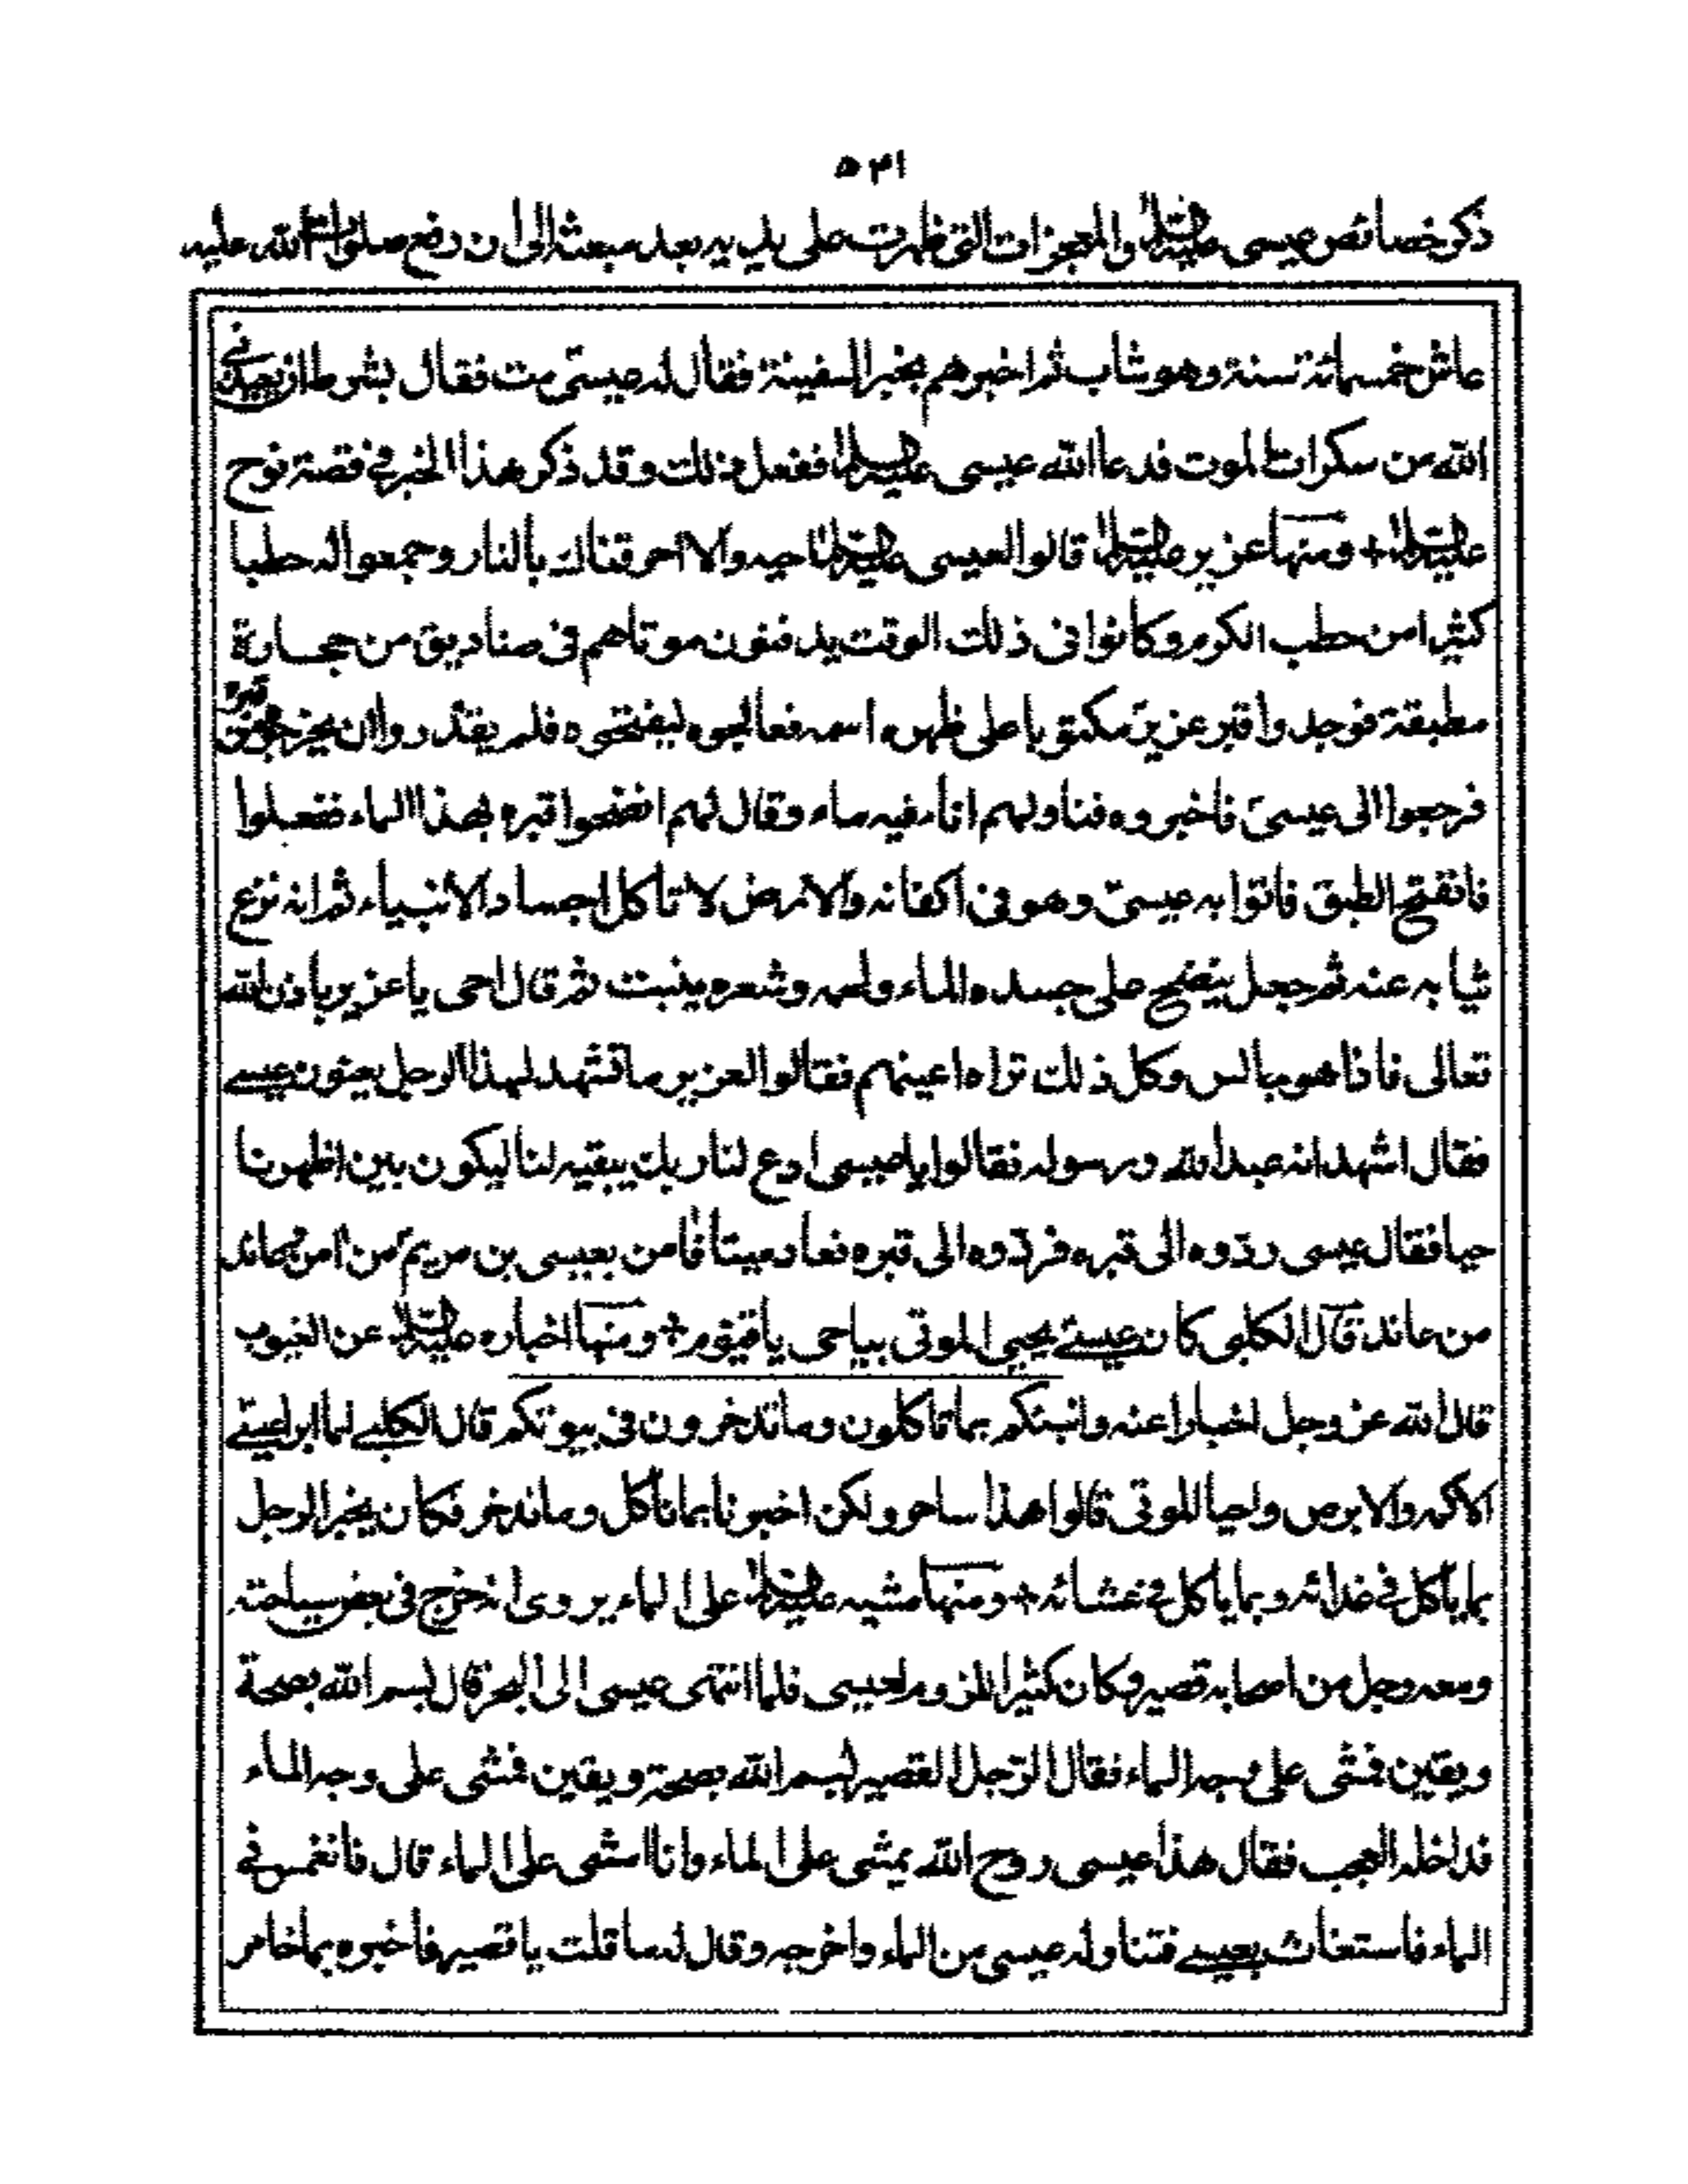 ٥٣١
ذكر خصائص عيسى عليه السلام والمعجزات التى ظهرت على يديه بعد مبعثه الى ان رفع صلوات الله عليه
عاش خمسمائة سنة وهو شاب ثم اخبرهم بخبر السفينة فقال له عيسىٰ مت فقال بشرط ان يعيذنى
الله من سكرات الموت فدعا الله عيسى عليه السلام ففعل ذلك وقد ذكر هذا الخبر فى قصة نوح
عليه السلام + ومنها عزير عليه السلام قالوا لعيسى عليه السلام احيه والا احرقناك بالنار وجمعوا له حطبا
كثيرا من حطب الكرم وكانوا فى ذلك الوقت يدفنون موتاهم فى صناديق من حجارة
مطبقة فوجدوا قبر عزير مكتوبا على ظهره اسمه فعالجوه ليفتحوه فلم يقدروا ان يخرجوه من قبره
فرجعوا الى عيسى فاخبروه فناولهم اناء فيه ماء وقال لهم انضحوا قبره بهذا الماء ففعلوا
فانفتح الطبق فاتوا به عيسى وهو فى اكفانه والارض لا تأكل اجساد الانبياء ثم انه نزع
ثيابه عنه ثم جعل ينضح على جسده الماء ولحمه وشعره ينبت ثم قال احى يا عزير باذن الله
تعالى فاذا هو جالس وكل ذلك تراه اعينهم فقالوا لعزير ما تشهد لهذا الرجل يعنون عيسى
فقال اشهد انه عبد الله ورسوله فقالوا يا عيسى ادع لنا ربك يبقيه لنا ليكون بين اظهرنا
حيا فقال عيسى ردّوه الى قبره فردّوه الى قبره فعاد ميتا فاٰمن بعيسى بن مريم من اٰمن وعاند
من عاند قال الكلبى كان عيسى يحيى الموتى بياحى يا قيوم + ومنها اخباره عليه السلام عن الغيوب
قال الله عز وجل اخبارا عنه وانبئكم بما تاكلون وما تدخرون فى بيوتكم قال الكلبى لما ابرأ عيسى
الاكمه والابرص واحيا الموتى قالوا هذا ساحر ولكن اخبرنا بما نأكل وما ندخر فكان يخبر الرجل
بما يأكل فى غدائه وبما يأكل فى عشائه + ومنها مشيه عليه السلام على الماء يروى انه خرج فى بعض سياحته
ومعه رجل من اصحابه قصير وكان كثير اللزوم لعيسى فلما انتهى عيسى الى البحر قال بسم الله بصحة
ويقين فمشى على وجه الماء فقال الرّجل القصير بسم الله بصحة ويقين فمشى على وجه الماء
فداخله العجب فقال هذا عيسى روح الله يمشى على الماء وانا امشى على الماء قال فانغمس فى
الماء فاستغاث بعيسى فتناوله عيسى من الماء واخرجه وقال له ما قلت يا قصير فاخبره بما خامر